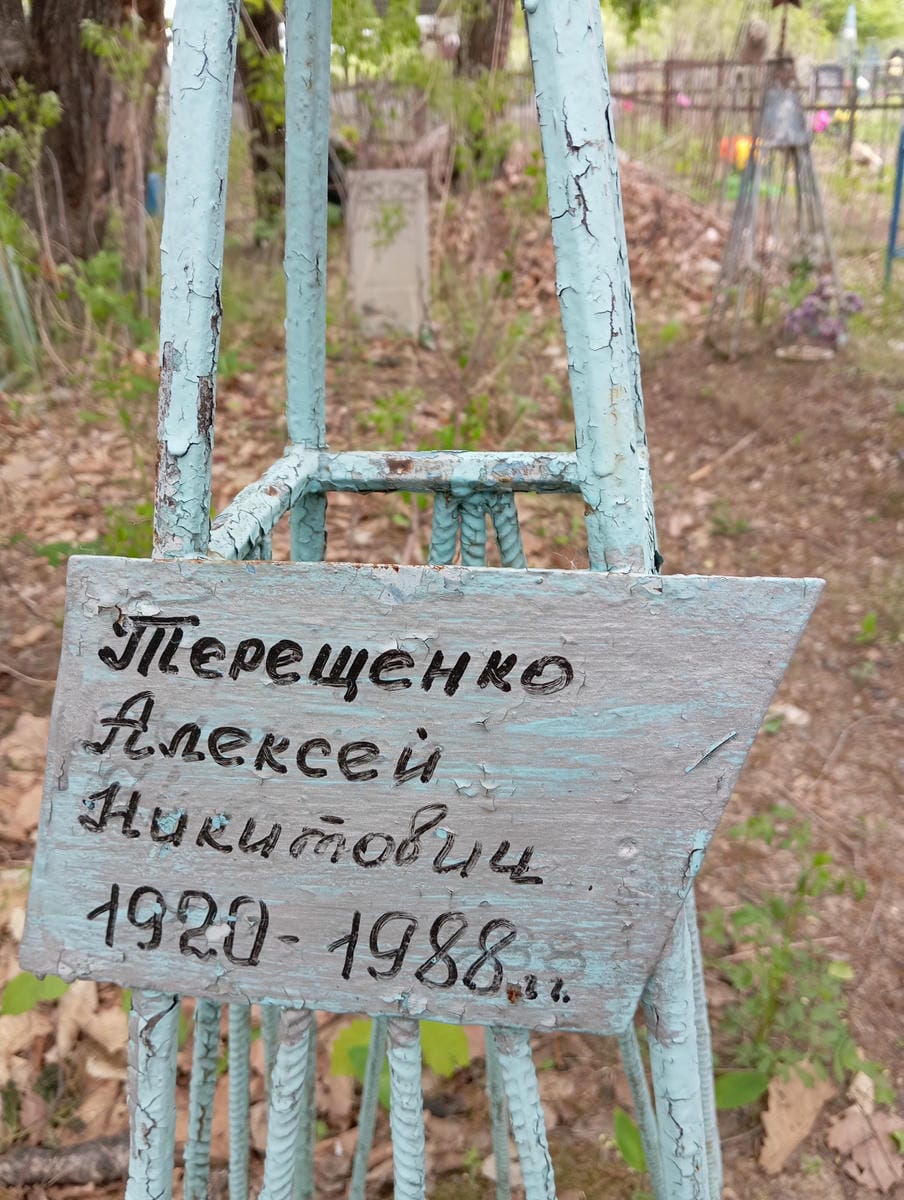 Терещенко
Алексей
Никитович
1920-1988г.г.